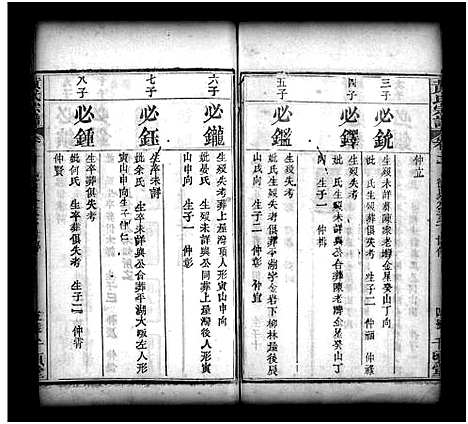 仲立
三子
必銳
生歿未詳葬陳家老塆金星癸山丁向
妣 氏生歿葬俱失考 生子二 仲福 仲祿
四子
必鐸
生歿未詳與公合葬陳老塆金星癸山丁
向 生子一 仲壽
必鑑
生歿失考
妣 氏生歿失考俱葬平湖字金岩下柳林塆後辰
山戌向 生子二 仲宜
六子
必鑨
生歿失考葬上塆灣頂人形寅山申向
妣晏氏 生歿未詳與公同葬上塆灣後人形寅
山申向 生子一 仲彰
七子
必鈺
生卒未詳
妣余氏 生卒未詳與公合葬平湖大畈左人形
寅山申向生子一仲仁
八子
必鍾
生卒葬俱失考
妣何氏 生卒葬俱失考 生子二 仲脊
仲賢